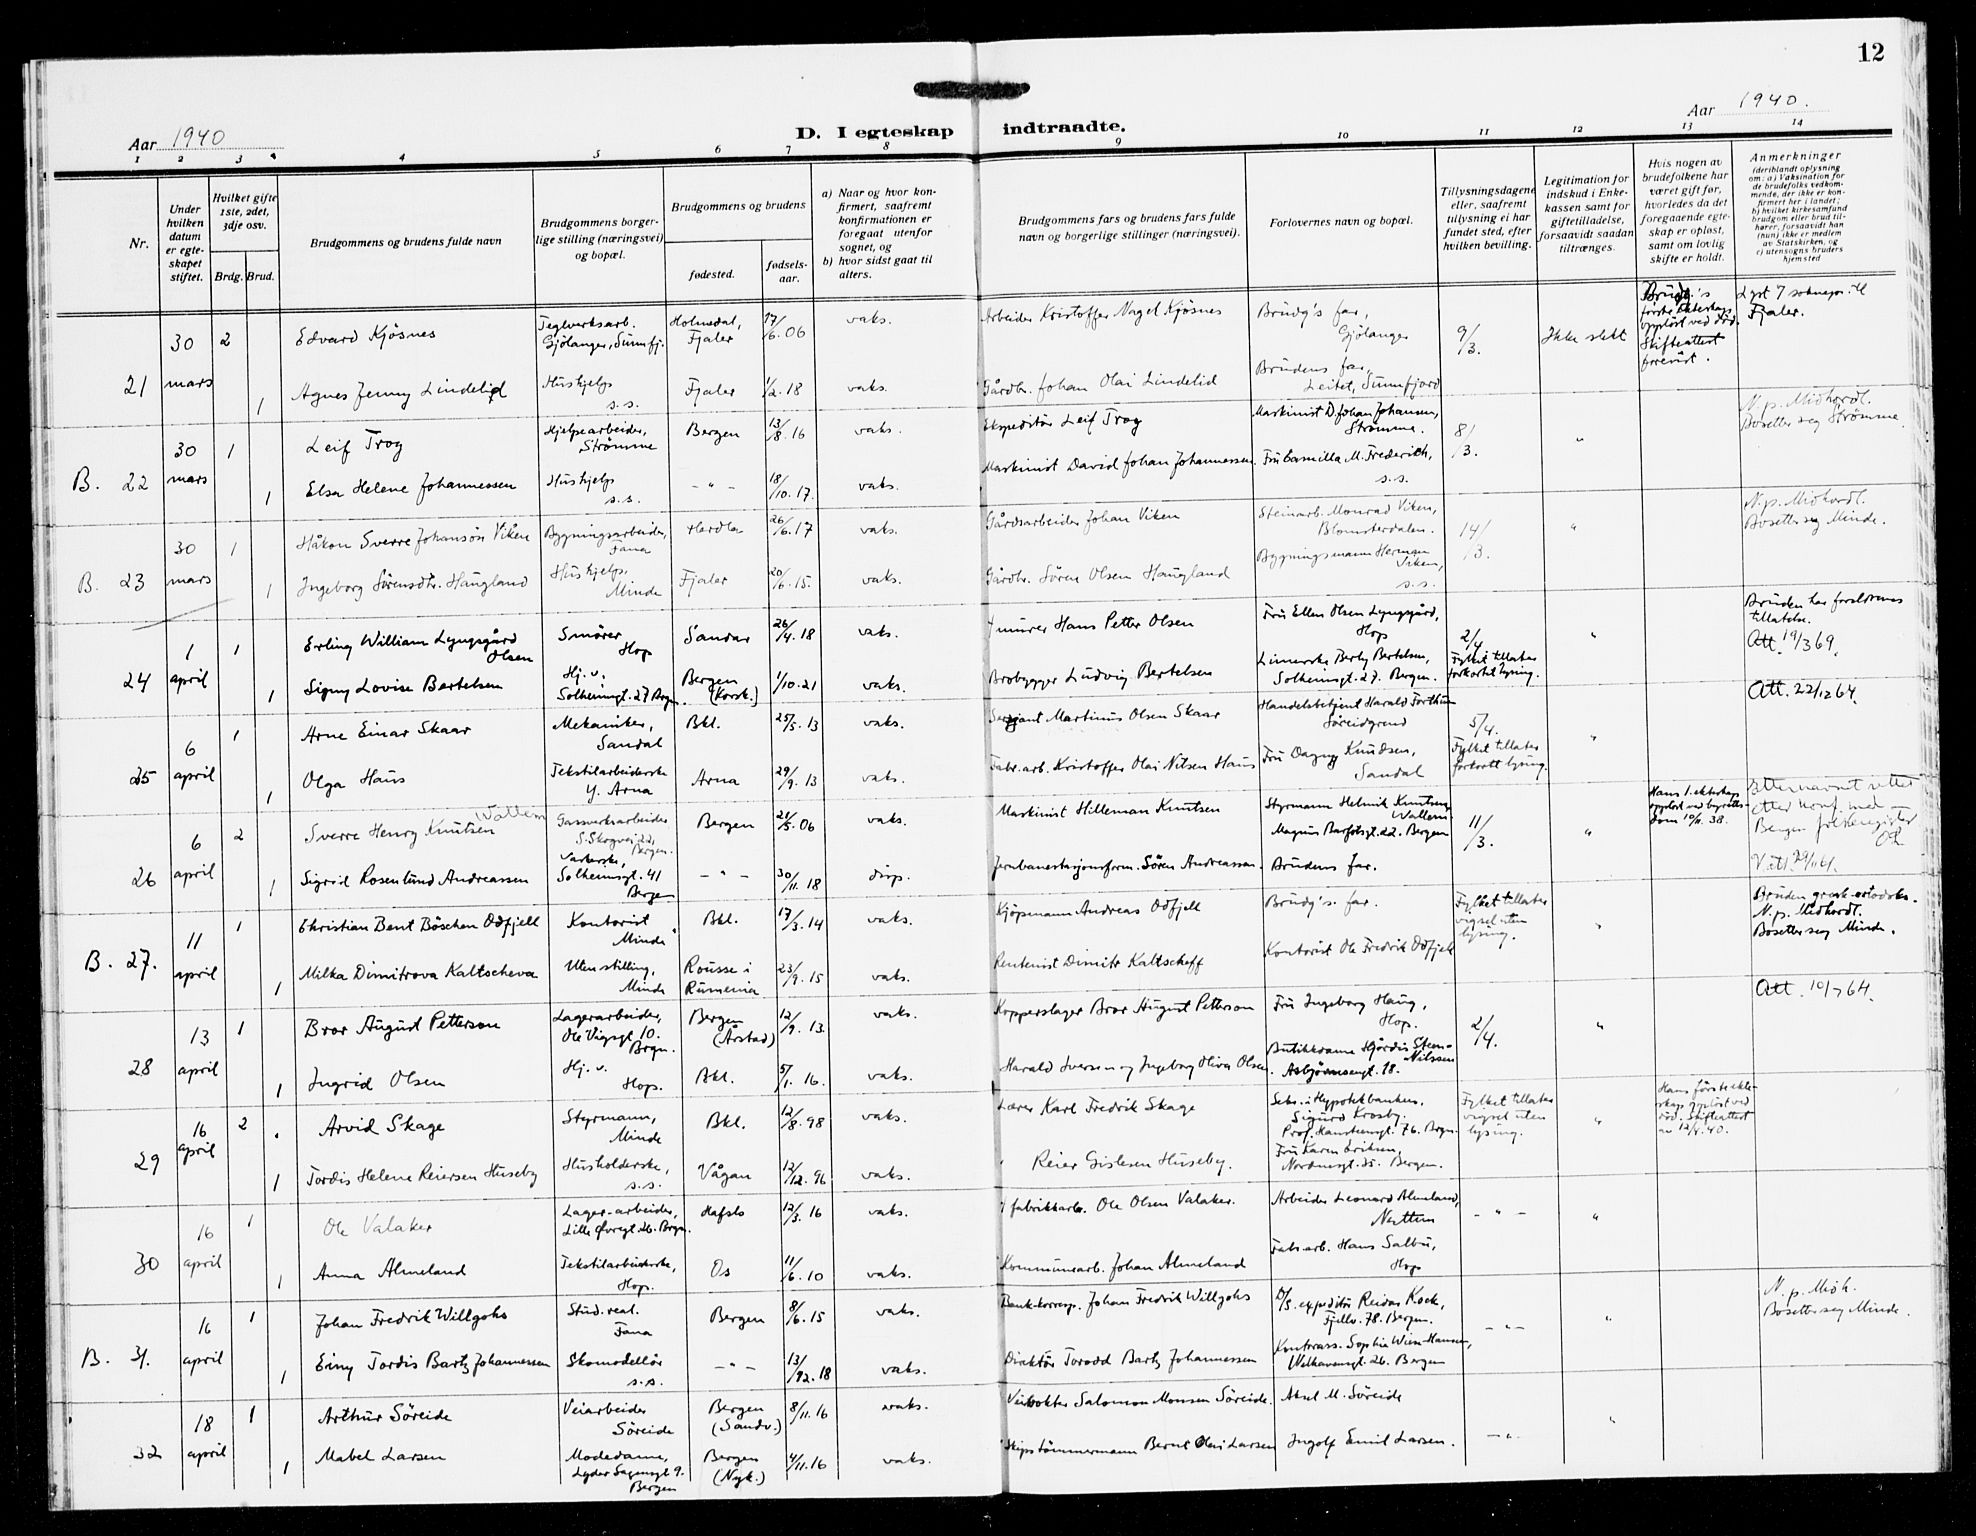 12
Aar 1940
D. I egteskap indtraadte.
Aar 1940.
1 2 3 4 5 6 7 8 9 10 11 12 13 14
Nr.
Under hvilken datum er egteskapet stiftet.
Hvilket gifte 1ste, 2det, 3dje osv.
Brdg. Brud.
Brudgommens og brudens fulde navn
Brudgommens borgerlige stilling (næringsvei) og bopæl.
Brudgommens og brudens
fødested.
fødselsaar.
a) Naar og hvor konfirmert, saafremt konfirmationen er foregaat utenfor sognet, og
b) hvor sidst gaat til alters.
Brudgommens fars og brudens fars fulde navn og borgerlige stillinger (næringsvei).
Forlovernes navn og bopæl.
Tillysningsdagene eller, saafremt tillysning ei har fundet sted, efter hvilken bevilling.
Legitimation for indskud i Enkekassen samt for giftetilladelse, forsaavidt saadan tiltrænges.
Hvis nogen av brudefolkene har været gift før, hvorledes da det foregaaende egteskap er opløst, samt om lovlig skifte er holdt.
Anmerkninger
(deriblandt oplysning om: a) Vaksination for de brudefolks vedkommende, der ikke er konfirmert her i landet; b) hvilket kirkesamfund brudgom eller brud tilhører, forsaavidt han (hun) ikke er medlem av Statskirken, og c) utensogns bruders hjemsted
21 30 mars 2 Edvard Kjøsnes Teglverksarb. Gjølanger, Sunnfj. Holmedal, Fjaler 17/6.06 vaks. Arbeider Kristoffer Nagel Kjøsnes Brudg's far, Gjølanger 9/3. Ikke slekt Brudg.'s første ekteskap oppløst ved død. Skifteattest forevist. Lyst 7 sokneprest til Fjaler.
1 Agnes Jenny Lindelid Hushjelp s.s. Fjaler 1/2.18 vaks. Gårdbr. Johan Olai Lindelid Brudens far, Leitet, Sunnfjord
B. 22 30 mars 1 Leif Trog Hjelpearbeider, Strømme Bergen 13/8.16 vaks. Ekspeditør Leif Trog Maskinist D. Johan Johansen, Strømme. 8/3. " N.p. Midhordl. Bosetter seg Strømme.
1 Elsa Helene Johannessen Hushjelp s.s. - " - 18/10.17. vaks. Maskinist David Johan Johannessen. Fru Camilla M. Frederich, s.s.
B. 23 30 mars 1 Håkon Sverre Johansøn Viken Bygningsarbeider, Fana Herdla 26/6.17 vaks. Gårdsarbeider Johan Viken Steinarb. Monrad Viken, Blomsterdalen. 14/3. " N.p. Midhordl. Bosetter seg Minde.
1 Ingeborg Sørensdtr. Haugland Hushjelp, Minde Fjaler 20/6.15. vaks. Gårdbr. Søren Olsen Haugland Bygningsmann Herman Viken, s.s.
24 1 april 1 Erling William Lyngsgård Olsen Smører Hop Sandar 26/4.18 vaks. murer Hans Petter Olsen Fru Ellen Olsen Lynggård, Hop 2/4 Fylket tillater forkortet lysing. " Bruden har foreldrenes tillatelse. Att. 19/3 69.
1 Signy Lovise Bertelsen Hj. v. Solheimsgt. 27 Brgn. Bergen (Korsk.) 1/10.21 vaks. Brobygger Ludvig Bertelsen Limerske Berly Bertelsen, Solheimsgt. 27. Bergen.
25 6 april 1 Arne Einar Skaar Mekaniker, Sandal Bkl. 25/5.13 vaks. Sersjant Martinus Olsen Skaar Handelsbetjent Harald Forthun Søreidgrend 5/4. Fylket tillater forkortt lysing. " Att. 22/12 64.
1 Olga Haus Tekstilarbeiderske Y. Arna Arna 29/9.13 vaks. Fabr.arb. Kristoffer Olai Nilsen Haus Fru Dagny Knudsen, Sandal
26 6 april 2 Sverre Henry Knutsen Wallem Gassverkarbeider S. Skogvei 22, Bergen. Bergen 21/5.06 vaks. Maskinist Hilleman Knutsen Styrmann Helmik Knutsen Wallem Magnus Barfotsgt. 22. Bergen 11/3. " Hans 1. ekteskap oppløst ved byretts-dom 10/11.38. Etternavnet rettet etter konf. med Bergen folkeregister
1 Sigrid Rosenlund Andreassen Solheimsgt. 41 Bergen - " - 30/11.18 disp. Jernbanestasjonsform. Søren Andreassen Brudens far.
B. 27. 11 april 1 Christian Bent Böschen Odfjell Kontorist Minde Bkl. 17/3.14 vaks. Kjøpmann Andreas Odfjell Brudg's. far. Fylket tillater vigsel uten lysing. " Bruden gresk-ortodoks. N.p. Midhordl. Bosetter seg Minde.
1 Milka Dimitrova Kaltscheva Uten stilling, Minde Rousse i Rumenia 23/9.15 vaks. Rentenist Dimitr Kaltscheff Kontorist Ole Fredrik Odfjell
28 13 april 1 Bror August Petterson Lagerarbeider, Ole Vigsgt 10. Brgn. Bergen (Årstad) 12/9.13. vaks. Kopperslager Bror August Petterson Fru Ingeborg Haug, Hop. 2/4. " Att. 10/7 64.
1 Ingrid Olsen Hj. v. Hop. Bkl. 5/1.16. vaks. Harald Iversen og Ingeborg Oliva Olsen. Butikkdame Hjørdis Steen-Nilssen Asbjørnsengt. 18.
29 16 april 2 Arvid Skage Styrmann, Minde Bkl. 12/8.98 vaks. Lærer Karl Fredrik Skage Sekr. i Hypotekbanken, Sigurd Krosby. Prof. Hansteensgt. 76. Brgn. Fylket tillater vigsel uten lysing. " Hans første ekteskap oppløst ved død. Skifteattest av 12/4.40.
1 Tordis Helene Reiersen Huseby Husholderske, s.s. Vågan 12/12.96 vaks. Reier Gislesen Huseby. Fru Karen Eriksen, Nordnesgt. 35. Bergen.
30 16 april 1 Ole Valaker Lager-arbeider, Lille Øvregt 26. Brgn. Hafslo 12/3.16 vaks. fabrikkarb. Ole Olsen Valaker. Arbeider Leonard Almeland, Nesttun - " - "
1 Anna Almeland Tekstilarbeiderske, Hop. Os 11/6.10 vaks. Kommunearb. Johan Almeland Fabr.arb. Hans Salbu, Hop
B. 31. 16 april 1 Johan Fredrik Willgohs Stud. real. Fana Bergen 8/6.15 vaks. Bank-korresp. Johan Fredrik Willgohs D/S. expeditør Reidar Kock, Fjellv. 78. Bergen. - " - " N.p. Midh. Bosetter seg Minde.
1 Einy Tordis Bartz Johannessen Skomodellør s.s. - " - 13/12.18 vaks. Direktør Torodd Bartz Johannessen Kontorass. Sophie Wiese Hansen, Welhavensgt. 26. Bergen
32 18 april 1 Arthur Søreide Veiarbeider Søreide Bergen (Sandv.) 8/11.16 vaks. Veivokter Salomon Monsen Søreide. Aksel M. Søreide - " - "
1 Mabel Larsen Motedame, Lyder Sagensgt 9. Bergen Bergen (Nyk.) 4/11.16 vaks. Skipstømmermann Bernt Olai Larsen Ingolf Emil Larsen.